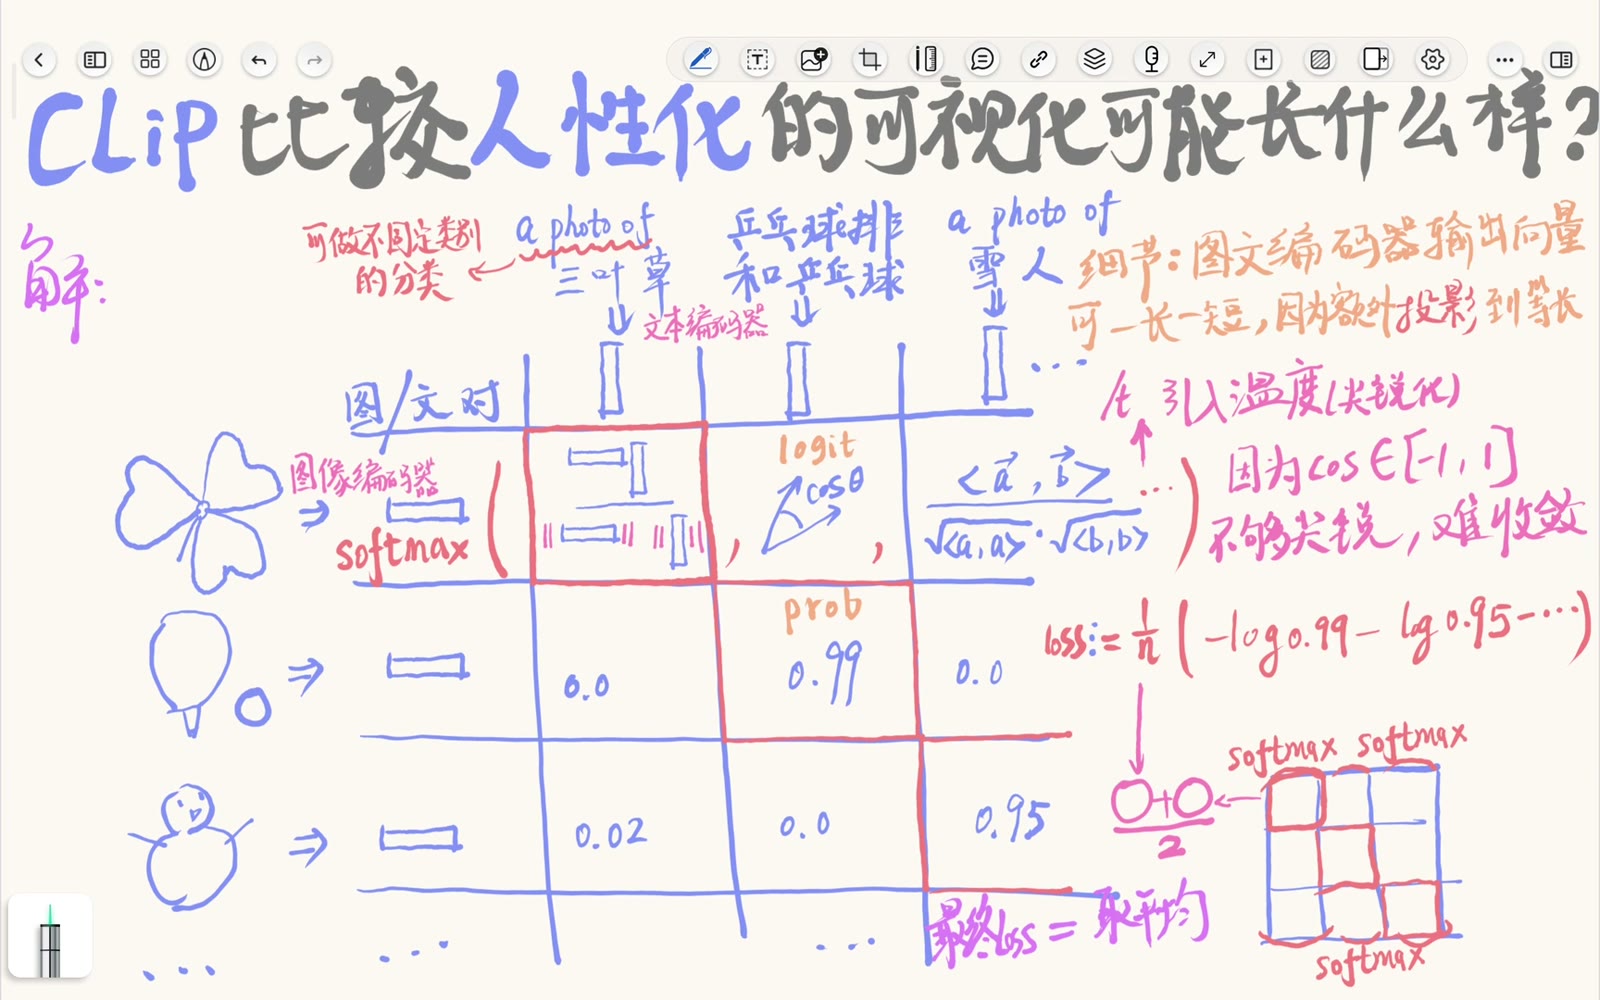 CLip 比较人性化的可视化可能长什么样?
解:
可做不固定类别
的分类
a photo of
三叶草
乒乓球排
和乒乓球
a photo of
雪人
细节:图文编码器输出向量
可一长一短,因为额外投影到等长
文本编码器
...
图/文对
/t 引入温度(尖锐化)
因为cos∈[-1,1]
不够尖锐,难收敛
图像编码器
softmax ( , logit cosθ , <a⃗,b⃗> / √<a,a>·√<b,b> ... )
prob
0.0 0.99 0.0
loss:= 1/n (-log0.99 - log0.95-...)
0.02 0.0 0.95
O+O
2
softmax softmax
softmax
最终loss = 取平均
... ... ...